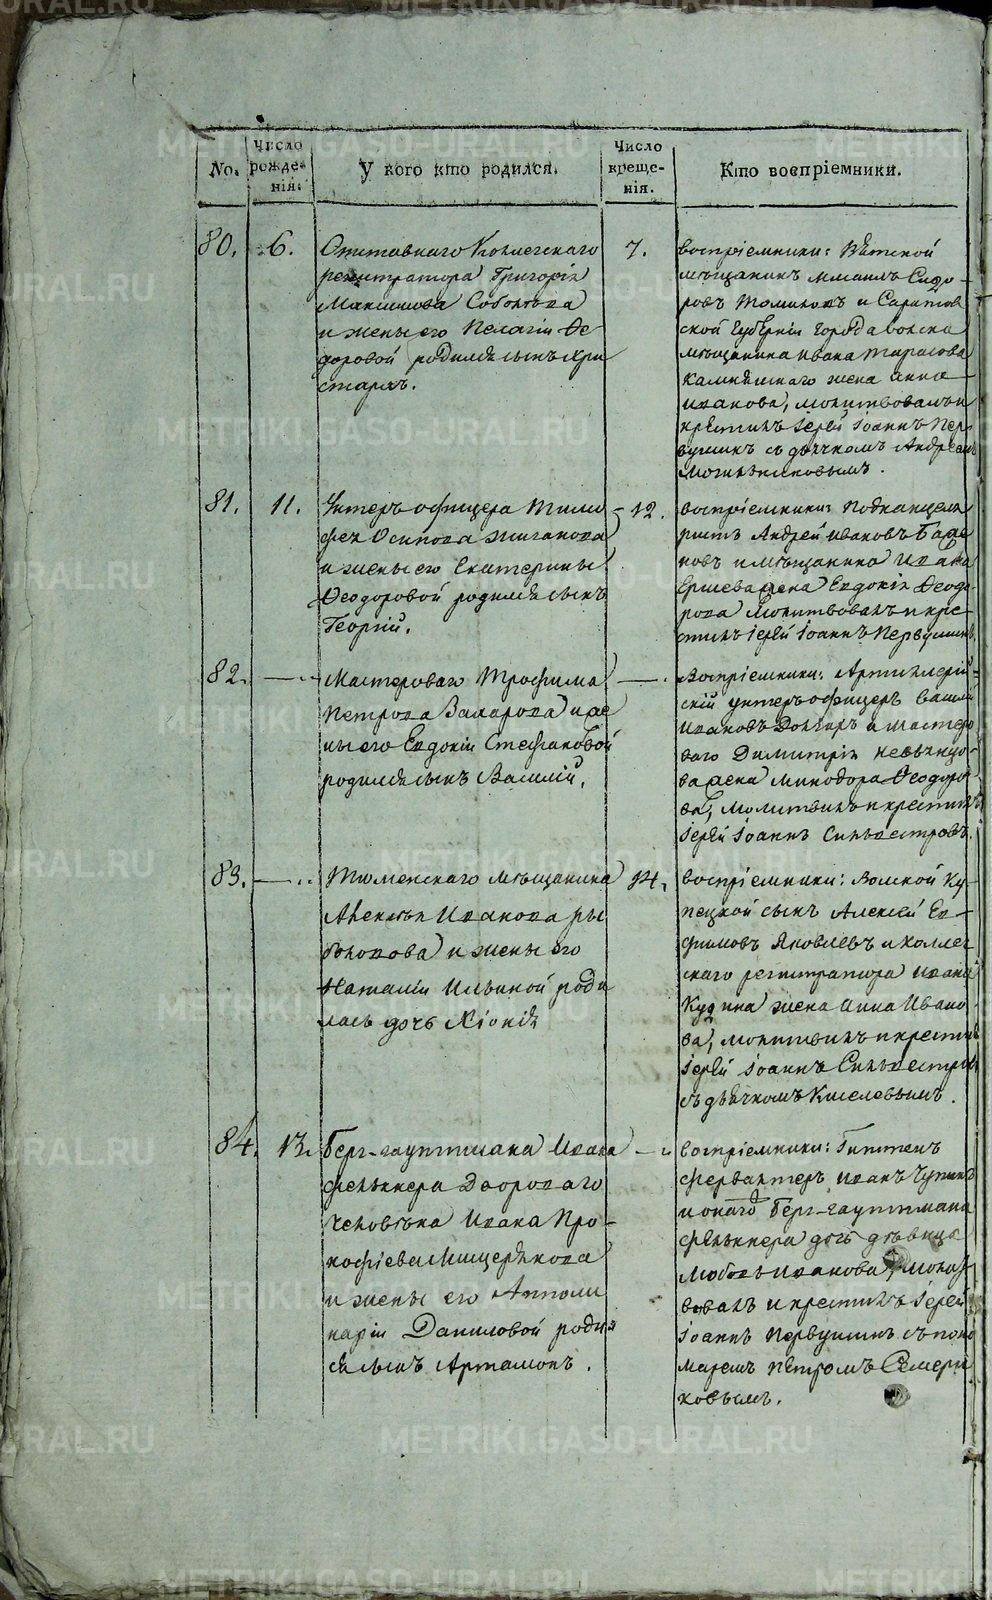 No.
Число рожде- нія.
У кого кто родился.
Число креще- нія.
Кто воспріемники.
80.
6.
Отставнаго Коллегскаго
регистратора Григорія
Максимова Соболева
и жены его Пелагіи Ѳе-
доровой родился сынъ Ари
стархъ.
7.
воспріемники: Вятской
мѣщанинъ Сидо-
ровъ и Саратов
ской Губерніи города волска
мѣщанина Ивана Тарасова
жена Анна
Иванова, молитвовалъ и
крестилъ Іерей Іоаннъ Пер
вушинъ съ дьячкомъ Андреемъ
81.
11.
Унтеръ офицера Тимо
фея Осипова Жиганова
и жены его Екатерины
Ѳеодоровой родился сынъ
Георгій.
12.
воспріемники: Подканцеля
ристъ Андрей Ивановъ Баже
новъ и мѣщанина Ивана
Ершева жена Евдокія Ѳеодо-
рова Молитвовалъ и кре-
стилъ Іерей Іоаннъ Первушинъ
82.
Мастероваго Трофима
Петрова Захарова и же
ны его Евдокіи Стефановой
родился сынъ Василій.
воспріемники: Артиллерій-
скій унтеръ офицеръ Васили
Ивановъ и мастеро
ваго Димитрія
ва жена Минодора Ѳеодоро
ва, молитвилъ и крестилъ
Іерей Іоаннъ Сильвестровъ.
83.
Тюменскаго мѣщанина
Алексѣя Иванова ры
болова и жены его
Наталіи Ильиной роди
лась дочь Хіонія
14.
воспріемники: Ку-
пецкой сынъ Алексѣй Ев-
фимовъ Яковлевъ и коллег
скаго регистратора Ивана
Кудрина жена Анна Ивано-
ва, молитвилъ и крестилъ
Іерей Іоаннъ Сильвестровъ
съ дьячкомъ Киселевымъ.
84.
13.
Берг-гауптмана Ивана
фелькнера Двороваго
человѣка Ивана Про-
кофіева Мищерякова
и жены его Апполи
наріи Даниловой роди
ся сынъ Артамонъ.
воспріемники: Гиттен
фервалтеръ Иванъ Чупинъ
и онаго Берг-гауптмана
фелькнера дочь дѣвица
Любовь Иванова, молит
вовалъ и крестилъ Іерей
Іоаннъ Первушинъ съ поно
маремъ Петромъ Семери
ковымъ.
METRIKI.GASO-URAL.RU